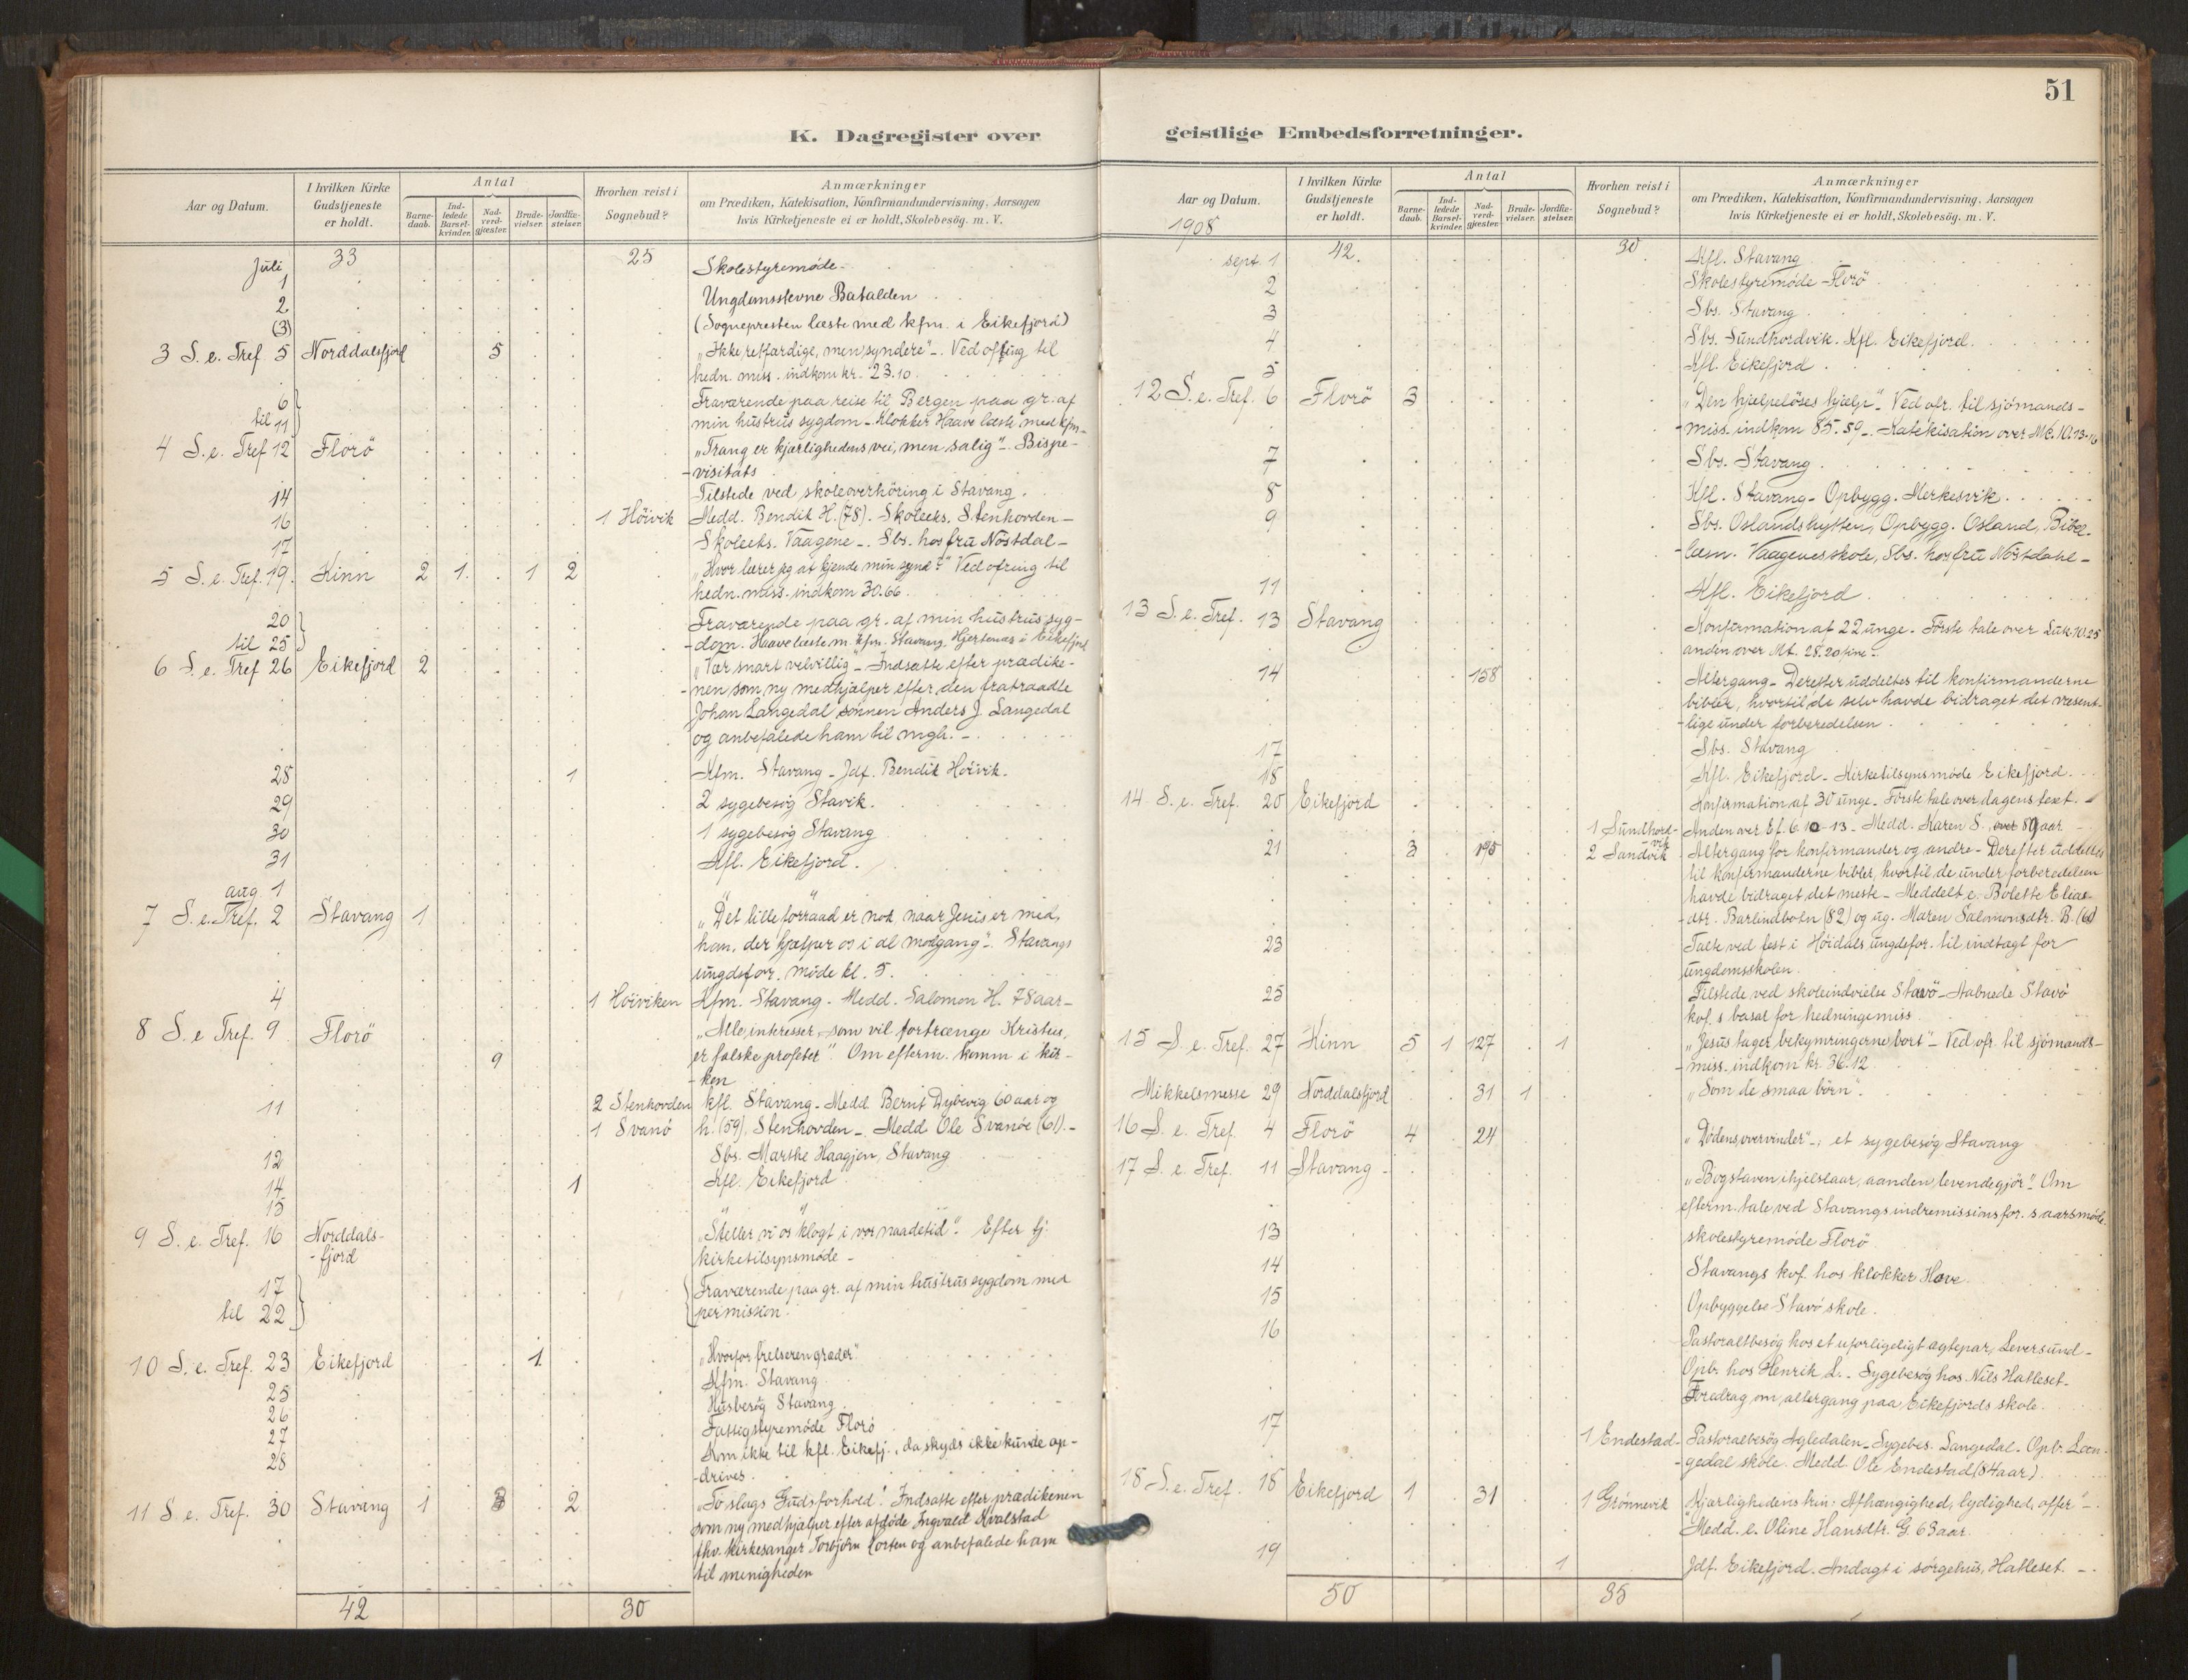 51
K. Dagregister over
Aar og Datum.
I hvilken Kirke Gudstjeneste er holdt.
Antal
Barne-daab.
Ind-ledede Barsel-kvinder.
Nad-verd-gjæster.
Brude-vielser.
Jordfæ-stelser.
Hvorhen reist i Sognebud?
Anmærkninger
om Prædiken, Katekisation, Konfirmandundervisning, Aarsagen
hvis Kirketjeneste ei er holdt, Skolebesög. m. V.
33 25
Juli 1 Skolestyremøde
2 Ungdomsstevne Batalden
(3) (Sognepresten læste med kfm. i Eikefjord)
3 S. e. Tref 5 Norddalsfjord 5 „Ikke retfærdige, men syndere" -. Ved ofring til
hedn. miss. indkom kr. 23.10
6 Fraværende paa reise til Bergen paa gr. af
til 11 min hustrus sygdom - Klokker Haave læste med kfm -
4 S. e. Tref 12 Florö „Trang er kjærlighedens vei, men salig" -. Bispe-
-visitats
14 Tilstede ved skoleoverhöring i Stavang.
16 1 Höivik Medd. Bendik H. (78). Skoleeks. Stenhovden -
17 Skoleeks. Vaagene -. Sbs. hos fru Nöstdal -
5 S. e. Tref. 19. Kinn 2 1 1 2 „Hvor lærer jeg at kjende min synd?" Ved ofring til
hedn. miss. indkom 30.66.
20 Fraværende paa gr. af min hustrus syg-
til 25 -dom. Haave læste m. kfm. Stavang. Hjertenæs i Eikefjord
6 S. e. Tref 26 Eikefjord 2 „Vær snart velvillig - Indsatte efter prædike-
-nen som ny medhjælper efter den fratraadte
Johan Langedal sönnen Anders J. Langedal
og anbefalede ham til mgh. -
28 1 Kfm. Stavang - Jdf. Bendik Höivik.
29 2 sygebesög Stavik.
30 1 sygebesög Stavang
31 Kfl. Eikefjord.
aug 1
7 S. e. Tref. 2 Stavang 1 „Det lille forraad er nok naar Jesus er med,
han, der hjælper os i al modgang" -. Stavangs
ungdsfor. möde kl. 5.
4 1 Höiviken Kfm. Stavang - Medd. Salomon H. 78 aar -
8 S. e Tref. 9 Florö „Alle interesser, som vil fortrænge Kristus,
9 er falske profeter". Om efterm. komm i kir-
-ken
11 2 Stenhovden kfl. Stavang - Medd. Bernt Dybevig 60 aar og
1 Svanö h. (59), Stenhovden - Medd Ole Svanöe (61). -
12 Sbs. Marthe Haagjen, Stavang
14 1 Kfl. Eikefjord
15
9 S. e. Tref. 16 Norddals- „Steller vi os klogt i vor naadetid". Efter tj.
-fjord kirketilsynsmöde -
17 Fraværende paa gr. af min hustrus sygdom med
til 22 permission.
10 S. e. Tref. 23 Eikefjord 1 „Hvorfor frelseren græder"
25 Kfm. Stavang
26 Husbesög Stavang
27 Fattigstyremöde Florö
28 Kom ikke til kfl. Eikefj., da skyds ikke kunde op-
-drives.
11 S e. Tref. 30 Stavang 1 2 „To slags Gudsforhold". Indsatte efter prædikenen
som ny medhjælper efter afdöde Ingvald Kvalstad
fhv. kirkesanger Torbjörn og anbefalede ham
til menigheden
42 30
geistlige Embedsforretninger.
Aar og Datum.
I hvilken Kirke Gudstjeneste er holdt.
Antal
Barne-daab.
Ind-ledede Barsel-kvinder.
Nad-verd-gjæster.
Brude-vielser.
Jordfæ-stelser.
Hvorhen reist i Sognebud?
Anmærkninger
om Prædiken, Katekisation, Konfirmandundervisning, Aarsagen
hvis Kirketjeneste ei er holdt, Skolebesög. m. V.
1908
sept. 1 42. 30 Kfl. Stavang
2 Skolestyremöde - Florö
3 Sbs. Stavang
4 Sbs. Sundhordvik. Kfl. Eikefjord.
5 Kfl. Eikefjord
12 S. e. Tref. 6 Florö 3 „Den hjælpelöses hjælp" -. Ved ofr. til sjömands-
-miss. indkom 85.59 -. Katekisation over Mc. 10.13-16
7 Sbs. Stavang
8 Kfl. Stavang - Opbygg. Merkesvik
9 Sbs. Oslandshytten, Opbygg. Osland, Bibel-
-læsn. Vaagenes skole, Sbs. hos fru Nöstdahl -
11 Kfl. Eikefjord
13 S. e. Tref. 13 Stavang Konfirmation af 22 unge - Förste tale over Luk. 10.25
anden over Mt. 28.20 fine -
14 158 Altergang - Derefter uddeltes til konfirmanderne
bibler, hvortil de selv havde bidraget det væsent-
-lige under forberedelsen
17 Sbs. Stavang
18 Kfl. Eikefjord - Kirketilsynsmöde Eikefjord.
14 S. e. Tref. 20 Eikefjord Konfirmation af 30 unge - Förste tale over dagens text. -
1 Sundhord-vik Anden over Ef. 6. 10-13 - Medd. Karen S. over 89 aar -
21 3 195 2 Sandvik Altergang for konfirmander og andre - Derefter uddeltes
til konfirmanderne bibler, hvortil de under forberedelsen
havde bidraget det meste - Meddelt e. Bolette Elias-
-dtr. Barlindbotn (82) og ug. Maren Salomonsdtr. B. (60)
23 Talte ved fest i Höidals ungdsfor. til indtægt for
ungdomsskolen.
25 Tilstede ved skoleindvielse Stavö - Aabnede Stavö
kvf. s basar for hedningemiss
15 S. e. Tref. 27 Kinn 5 1 127 1 „Jesus tager bekymringerne bort" - Ved ofr. til sjömands-
-miss. indkom kr. 36.12
Mikkelsmesse 29 Norddalsfjord 31 1 „Som de smaa börn".
16 S. e. Tref. 4 Florö 4 24 „Dödens overvinder" -. et sygebesög Stavang
17 S. e. Tref. 11 Stavang - „Bogstaven ihjelslaar, aanden levendegjör" - Om
efterm. tale ved Stavangs indremissionsfor. s aarsmöde
13 skolestyremöde Florö
14 Stavangs kvf. hos klokker Have
15 Opbyggelse Stavö skole.
16 Pastoraltbesög hos et uforligeligt ægtepar, Leversund -
Opb. hos Henrik L. - Sygebesög hos Nils Hatleset -
Foredrag om altergang paa Eikefjords skole.
17 1 Endestad- Pastoralbesög Agledalen - Sygebes. Langedal - Opb. Lan-
-gedal skole. Medd. Ole Endestad (84 aar)
18 S. e. Tref. 18 Eikefjord 1 31 1 Grönnevik „Kjærlighedens trin: Afhængighed, lydighed, offer" -
Medd. e. Oline Hansdtr. G. 63 aar
19 1 Jdf. Eikefjord. Andagt i sörgehus, Hatleset. -
50 35